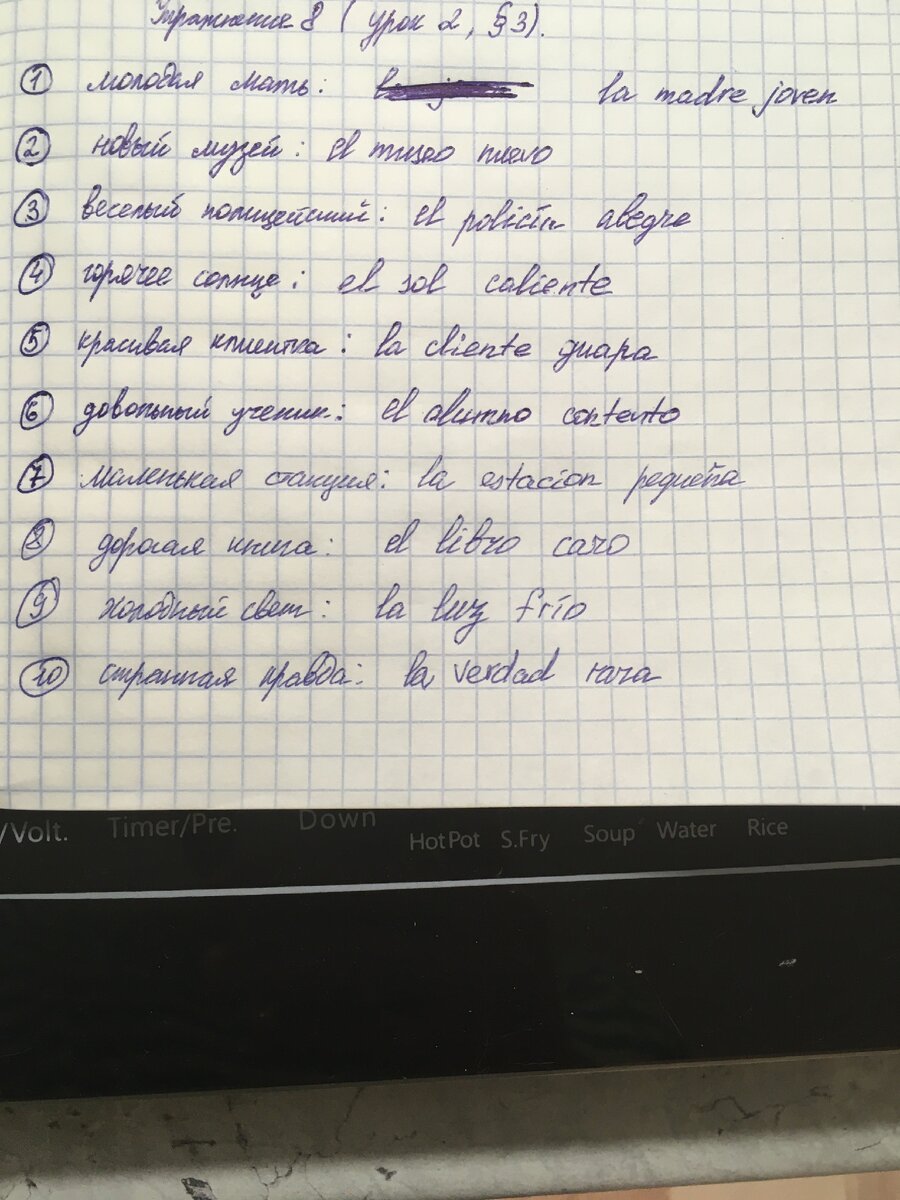 Упражнение 8 (урок 2, §3).
1 молодая мать: la madre joven
2 новый музей: el museo nuevo
3 веселый полицейский: el alegre
4 горячее солнце: el sol caliente
5 красивая клиентка: la cliente guapa
6 довольный ученик: el alumno contento
7 маленькая станция: la estacion pequeña
8 дорогая книга: el libro caro
9 холодный свет: la luz frío
10 странная правда: la verdad rara
/Volt. Timer/Pre. Down HotPot S.Fry Soup Water Rice